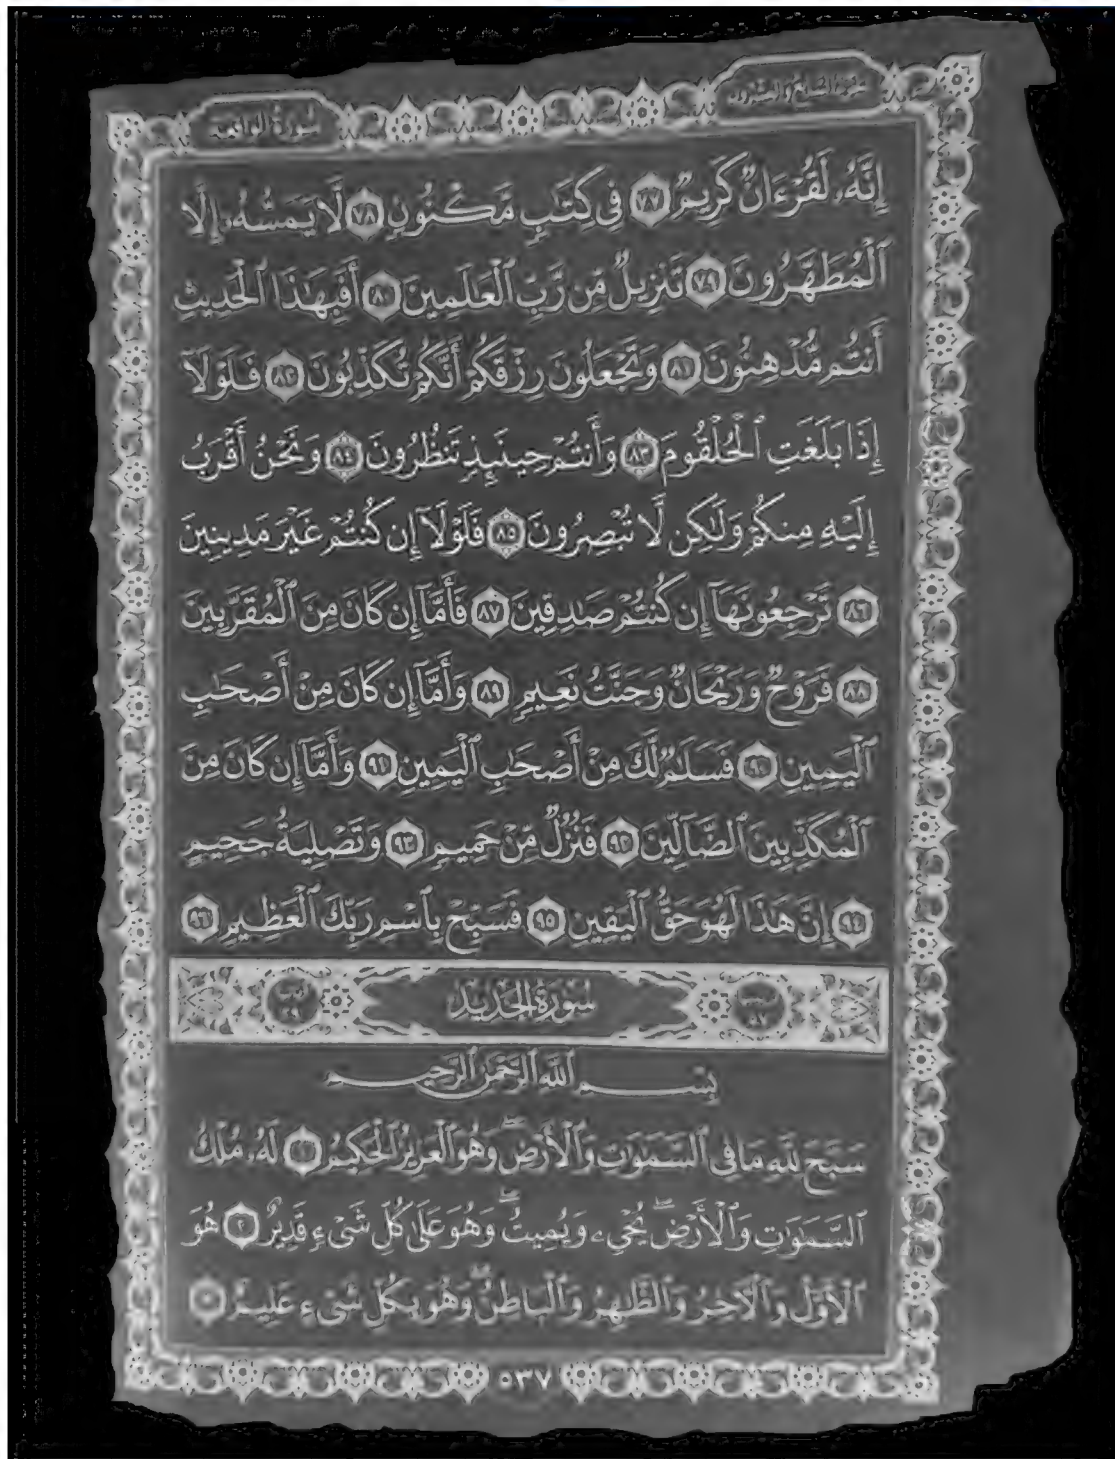 الجزء السابع والعشرون
سورة الواقعة
إِنَّهُۥ لَقُرْءَانٌ كَرِيمٌ ٧٧ فِى كِتَٰبٍ مَّكْنُونٍ ٧٨ لَّا يَمَسُّهُۥٓ إِلَّا
ٱلْمُطَهَّرُونَ ٧٩ تَنزِيلٌ مِّن رَّبِّ ٱلْعَٰلَمِينَ ٨٠ أَفَبِهَٰذَا ٱلْحَدِيثِ
أَنتُم مُّدْهِنُونَ ٨١ وَتَجْعَلُونَ رِزْقَكُمْ أَنَّكُمْ تُكَذِّبُونَ ٨٢ فَلَوْلَآ
إِذَا بَلَغَتِ ٱلْحُلْقُومَ ٨٣ وَأَنتُمْ حِينَئِذٍ تَنظُرُونَ ٨٤ وَنَحْنُ أَقْرَبُ
إِلَيْهِ مِنكُمْ وَلَٰكِن لَّا تُبْصِرُونَ ٨٥ فَلَوْلَآ إِن كُنتُمْ غَيْرَ مَدِينِينَ
٨٦ تَرْجِعُونَهَآ إِن كُنتُمْ صَٰدِقِينَ ٨٧ فَأَمَّآ إِن كَانَ مِنَ ٱلْمُقَرَّبِينَ
٨٨ فَرَوْحٌ وَرَيْحَانٌ وَجَنَّتُ نَعِيمٍ ٨٩ وَأَمَّآ إِن كَانَ مِنْ أَصْحَٰبِ
ٱلْيَمِينِ ٩٠ فَسَلَٰمٌ لَّكَ مِنْ أَصْحَٰبِ ٱلْيَمِينِ ٩١ وَأَمَّآ إِن كَانَ مِنَ
ٱلْمُكَذِّبِينَ ٱلضَّآلِّينَ ٩٢ فَنُزُلٌ مِّنْ حَمِيمٍ ٩٣ وَتَصْلِيَةُ جَحِيمٍ
٩٤ إِنَّ هَٰذَا لَهُوَ حَقُّ ٱلْيَقِينِ ٩٥ فَسَبِّحْ بِٱسْمِ رَبِّكَ ٱلْعَظِيمِ ٩٦
سُورَةُ الحَدِيدِ
بِسْمِ ٱللَّهِ ٱلرَّحْمَٰنِ ٱلرَّحِيمِ
سَبَّحَ لِلَّهِ مَا فِى ٱلسَّمَٰوَٰتِ وَٱلْأَرْضِ ۖ وَهُوَ ٱلْعَزِيزُ ٱلْحَكِيمُ ١ لَهُۥ مُلْكُ
ٱلسَّمَٰوَٰتِ وَٱلْأَرْضِ ۖ يُحْىِۦ وَيُمِيتُ ۖ وَهُوَ عَلَىٰ كُلِّ شَىْءٍ قَدِيرٌ ٢ هُوَ
ٱلْأَوَّلُ وَٱلْءَاخِرُ وَٱلظَّٰهِرُ وَٱلْبَاطِنُ ۖ وَهُوَ بِكُلِّ شَىْءٍ عَلِيمٌ ٣
٥٣٧